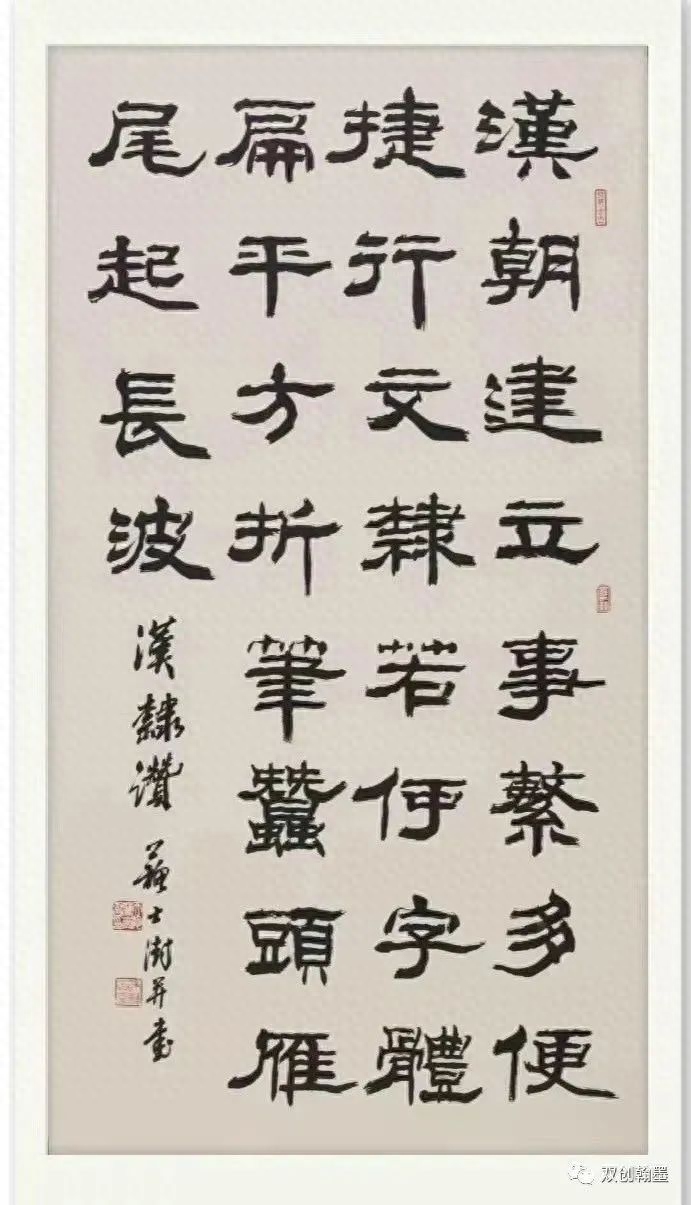 漢朝建立事繁多便
捷行文隸若何字體
扁平方折筆蠶頭雁
尾起長波
漢隸讚 蘇士澍并書
双创翰墨